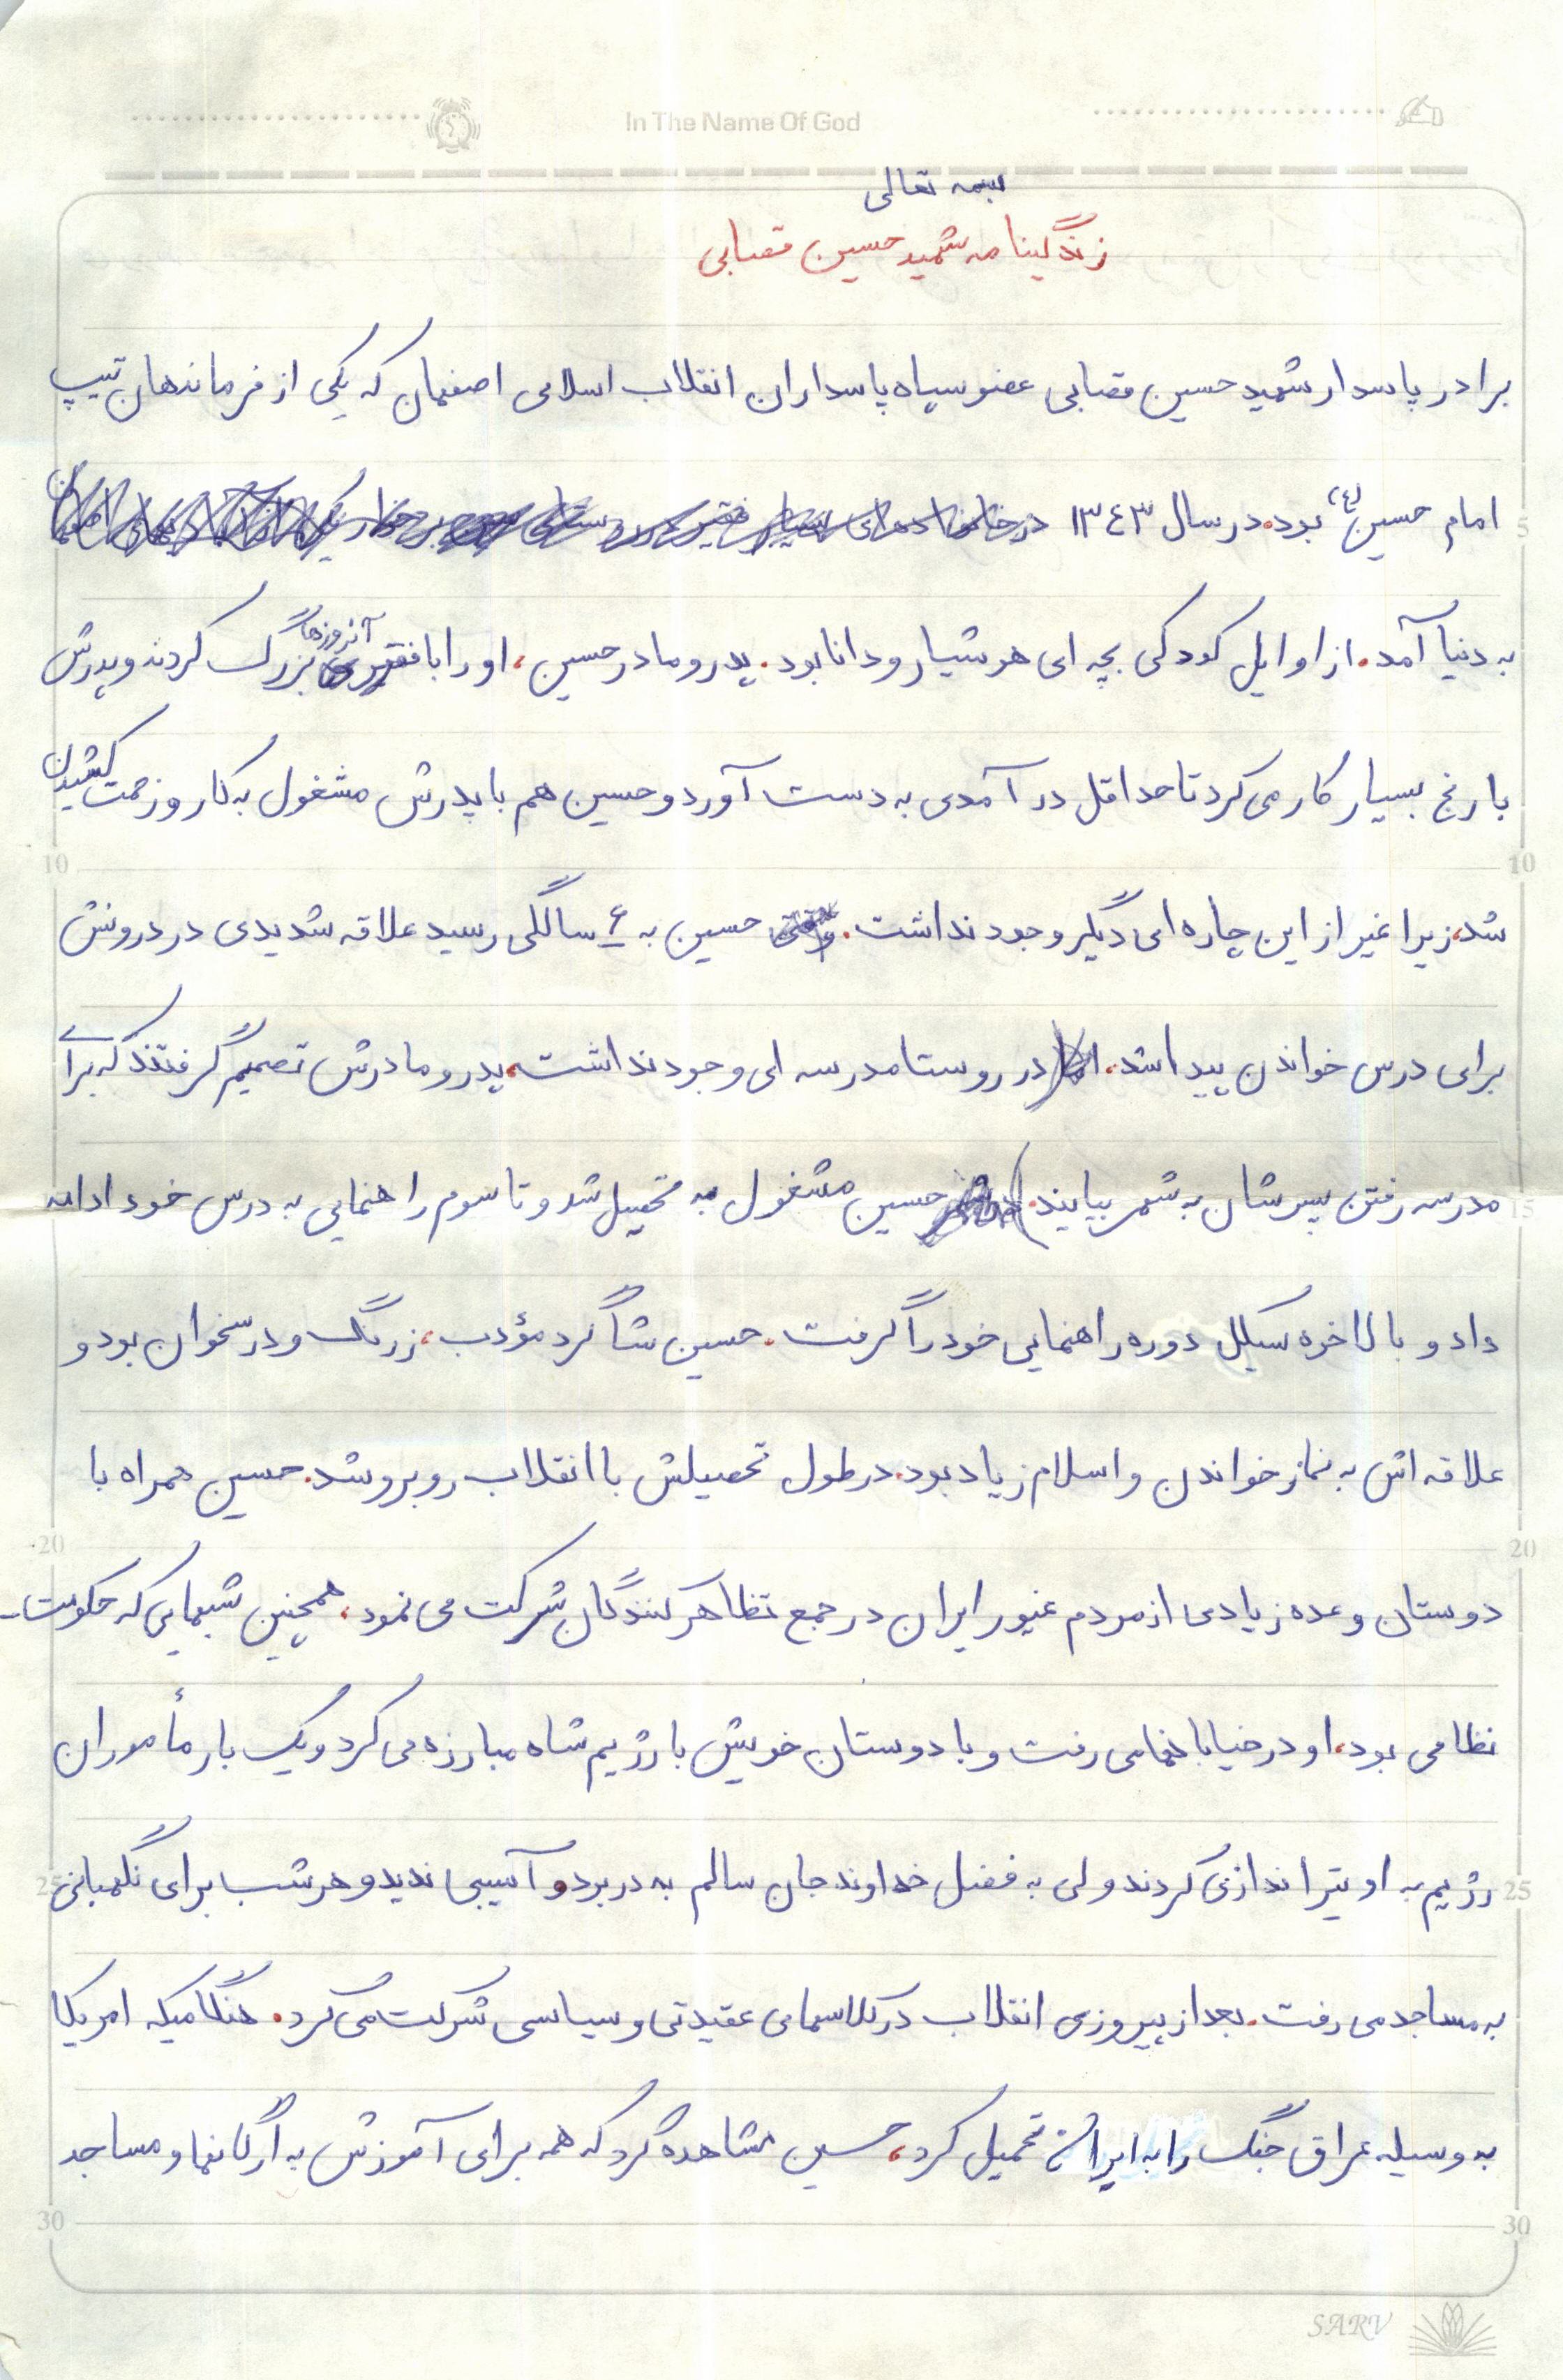 In The Name Of God
بسمه تعالی
زندگینامه شهید حسین قصابی
برادر پاسدار شهید حسین قصابی عضو سپاه پاسداران انقلاب اسلامی اصفهان که یکی از فرماندهان تیپ
امام حسین (ع) بود. در سال ۱۳۴۳
به دنیا آمد. از اوایل کودکی بچه ای هوشیار و دانا بود. پدر و مادر حسین، او را با فقر آنروزها بزرگ کردند و پدرش
با رنج بسیار کار می کرد تا حداقل درآمدی به دست آورد و حسین هم با پدرش مشغول به کار و زحمت کشیدن
شد، زیرا غیر از این چاره ای دیگر وجود نداشت. وقتی حسین به ۶ سالگی رسید علاقه شدیدی در درونش
برای درس خواندن پیدا شد. اما در روستا مدرسه ای وجود نداشت، پدر و مادرش تصمیم گرفتند که برای
مدرسه رفتن پسرشان به شهر بیایند. حسین مشغول به تحصیل شد و تا سوم راهنمایی به درس خود ادامه
داد و بالاخره سیکل دوره راهنمایی خود را گرفت. حسین شاگرد مؤدب، زرنگ و درسخوان بود و
علاقه اش به نماز خواندن و اسلام زیاد بود. در طول تحصیلش با انقلاب روبرو شد. حسین همراه با
دوستان و عده زیادی از مردم غیور ایران در جمع تظاهرکنندگان شرکت می نمود، همچنین شبهایی که حکومت-
نظامی بود، او در خیابانها می رفت و با دوستان خویش با رژیم شاه مبارزه می کرد و یک بار مأموران
رژیم به او تیراندازی کردند ولی به فضل خداوند جان سالم به در برد و آسیبی ندید و هر شب برای نگهبانی
به مساجد می رفت. بعد از پیروزی انقلاب در کلاسهای عقیدتی و سیاسی شرکت می کرد. هنگامیکه امریکا
به وسیله عراق جنگ را به ایران تحمیل کرد، حسین مشاهده کرد که همه برای آموزش به ارگانها و مساجد
5
10
10
15
20
20
25
25
30
30
SARV